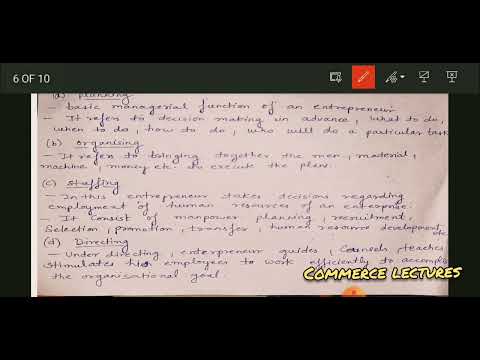 6 OF 10
(a) Planning
- basic managerial function of an entrepreneur
- It refers to decision making in advance, what to do,
when to do, how to do, who will do a particular task
(b) Organising
- It refers to bringing together the men, material,
machine, money etc. to execute the plan.
(c) Staffing
- In this entrepreneur takes decisions regarding
employment of human resources of an enterprise.
- It consist of manpower planning, recruitment,
Selection, promotion, transfer, human resource development, etc
(d) Directing
- Under directing, enterpreneur guides, counsels, teaches
stimulates his employees to work efficiently to accomplis
the organisational goal.
COMMERCE LECTURES